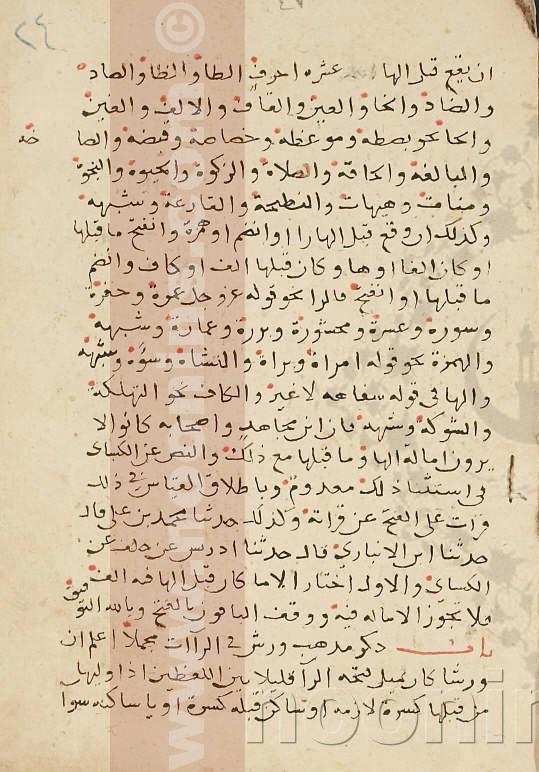 ٢٤
ان يقع قبل الها عشره احرف الطا والظا والصاد
والضاد والخا والعين والقاف والالف والغين
والحا نحو بصطه وموعظه وخصاصة وقبضه والصا خه
والبالغه والحاقة والصلاة والزكوة والحيوة والنجوة
ومناة وهيهات والنطيحة والقارعة وشبهه
وكذلك ان وقع قبل الها را وانضم او همزة وانفتح ما قبلها
او كان الفا او ها وكان قبلها الف او كاف وانضم
ما قبلها او انفتح فالرا نحو قوله عز وجل عمرة وحفرة
وسوره وعسرة ومحشورة وبررة وعمارة وشبهه
والهمزة نحو قوله امراة وبراة والنشاة وسوة وشبهه
والها في قوله سفاهه لا غير والكاف نحو التهلكة
والشوكة وشبهه فان ابن مجاهد واصحابه كانوا لا
يرون امالة الها وما قبلها مع ذلك والنص عن الكساى
في استثنا ذلك معدوم وباطلاق القياس في ذلك
قرات على الفتح عن قراته وكذلك حدثنا محمد بن على قال
حدثنا ابن الانباري قال حدثنا ادريس عن خلف عن
الكساي والاول اختار الا ما كان قبل الها فيه الف
فلا تجوز الاماله فيه ووقف الباقون بالفتح وبالله التوفيق
باب ذكر مذهب ورش في الرآات مجملا اعلم ان
ورشا كان يميل فتحه الرا قليلا بين اللفظين اذا وليها
من قبلها كسرة لازمه او ساكن قبله كسرة او يا ساكنه سوا
noormags